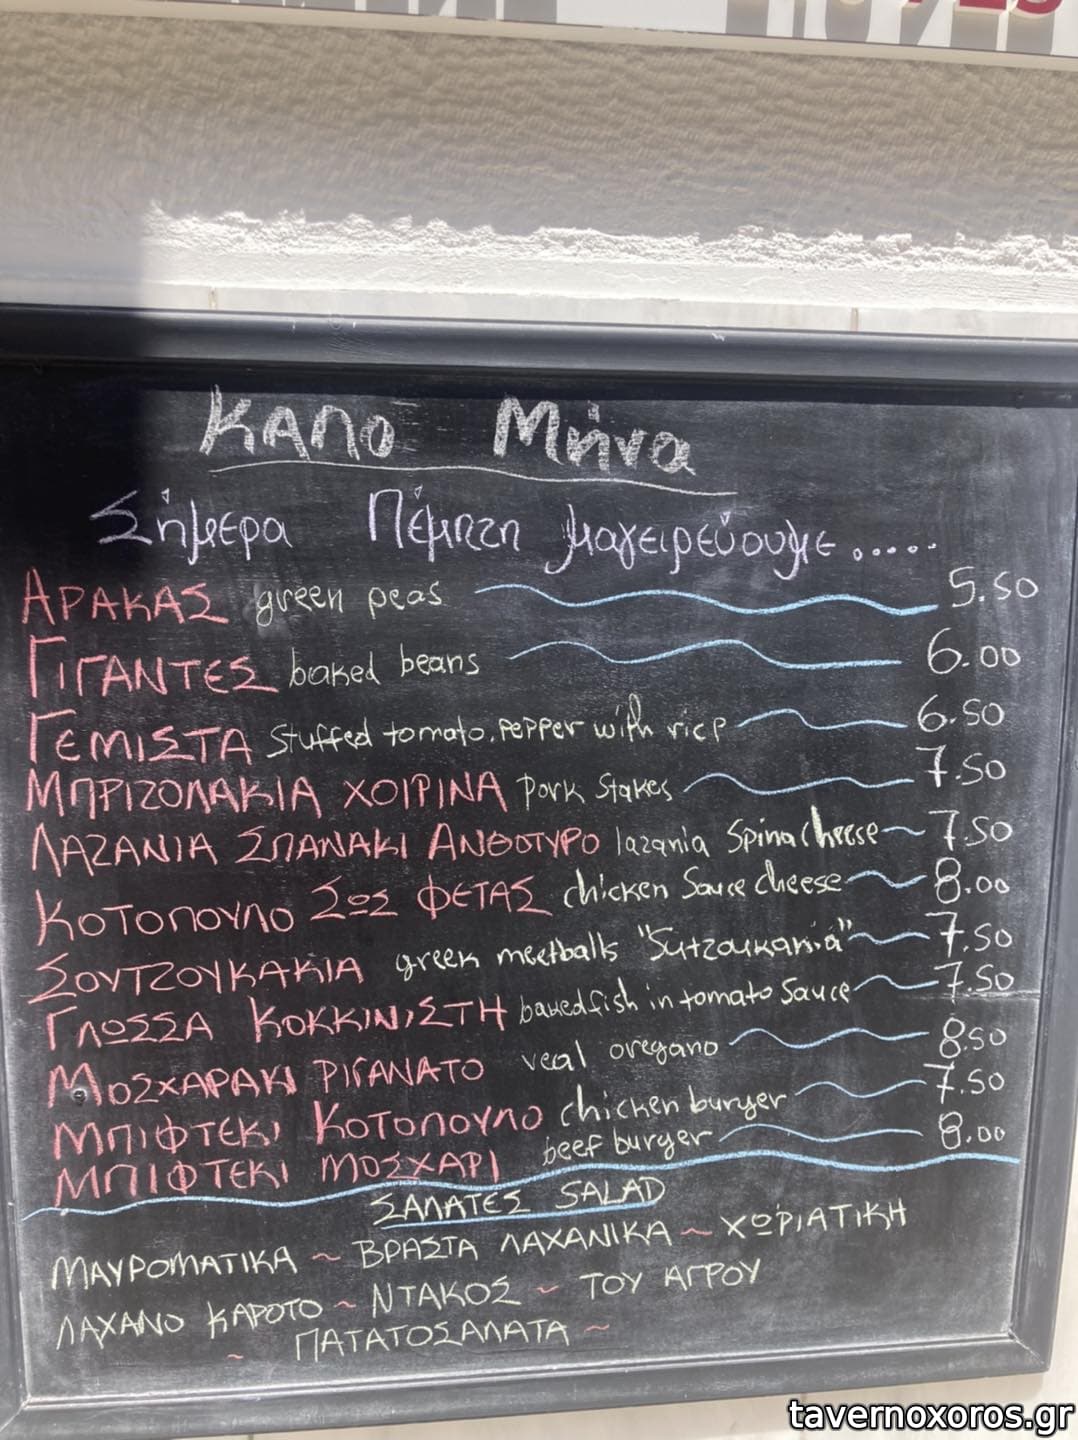 ΚΑΛΟ Μήνα
Σήμερα Πέμπτη μαγειρεύουμε.....
ΑΡΑΚΑΣ green peas 5.50
ΓΙΓΑΝΤΕΣ baked beans 6.00
ΓΕΜΙΣΤΑ stuffed tomato, pepper with rice 6.50
ΜΠΡΙΖΟΛΑΚΙΑ ΧΟΙΡΙΝΑ Pork Stakes 7.50
ΛΑΖΑΝΙΑ ΣΠΑΝΑΚΙ ΑΝΘΟΤΥΡΟ lazania Spina cheese 7.50
ΚΟΤΟΠΟΥΛΟ ΣΩΣ ΦΕΤΑΣ chicken Sauce cheese 8.00
ΣΟΥΤΖΟΥΚΑΚΙΑ green meetballs "Sutzoukania" 7.50
ΓΛΩΣΣΑ ΚΟΚΚΙΝΙΣΤΗ baked fish in tomato Sauce 7.50
ΜΟΣΧΑΡΑΚΙ ΡΙΓΑΝΑΤΟ veal oregano 8.50
ΜΠΙΦΤΕΚΙ ΚΟΤΟΠΟΥΛΟ chicken burger 7.50
ΜΠΙΦΤΕΚΙ ΜΟΣΧΑΡΙ beef burger 8.00
ΣΑΛΑΤΕΣ SALAD
ΜΑΥΡΟΜΑΤΙΚΑ ~ ΒΡΑΣΤΑ ΛΑΧΑΝΙΚΑ ~ ΧΩΡΙΑΤΙΚΗ
ΛΑΧΑΝΟ ΚΑΡΟΤΟ ~ ΝΤΑΚΟΣ ~ ΤΟΥ ΑΓΡΟΥ
~ ΠΑΤΑΤΟΣΑΛΑΤΑ ~
tavernoxoros.gr